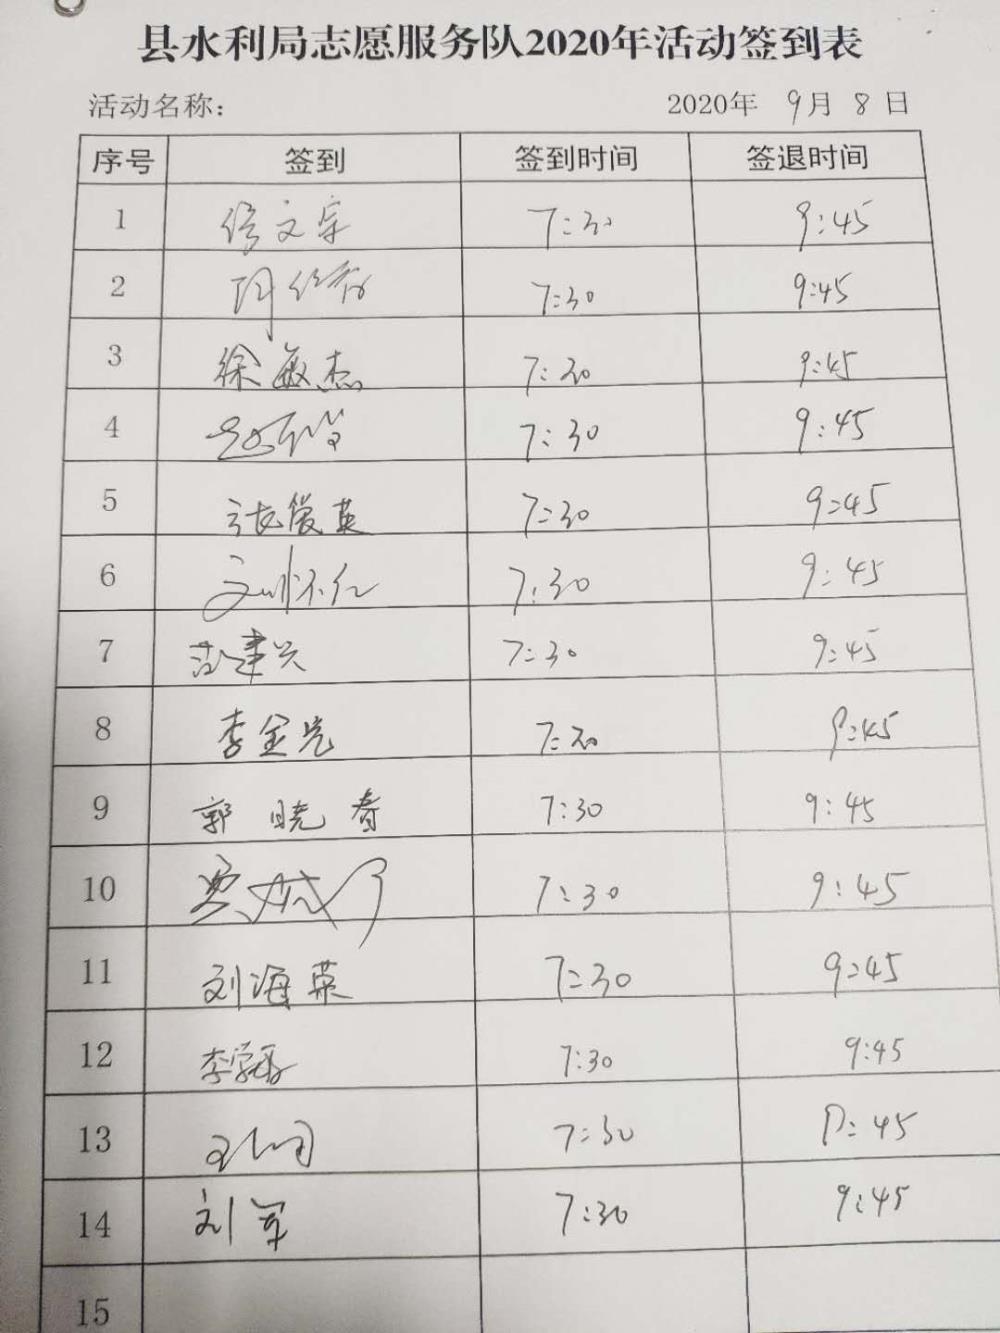 县水利局志愿服务队2020年活动签到表
活动名称： 2020年 9月 8 日
序号 签到 签到时间 签退时间
1 文宇 7:30 9:45
2 7:30 9:45
3 徐敏杰 7:30 9:45
4 7:30 9:45
5 张俊英 7:30 9:45
6 刘怀仁 7:30 9:45
7 范建兴 7:30 9:45
8 李金光 7:30 9:45
9 郭晓春 7:30 9:45
10 7:30 9:45
11 刘海英 7:30 9:45
12 李 7:30 9:45
13 7:30 9:45
14 刘军 7:30 9:45
15